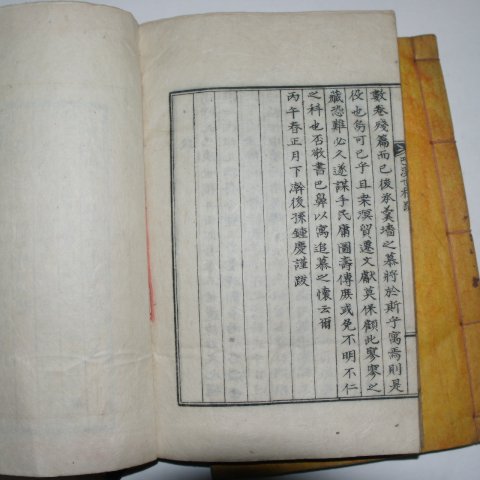 數卷殘篇而已後承羹墻之慕將於斯乎寓焉則是
役也烏可已乎且桑溟貿遷文獻莫保顧此寥寥之
藏恐難必久遂謀手民庸圖壽傳厥或免不明不仁
之科也否敢書巴鼻以寓追慕之懷云爾
丙午春正月下澣後孫鍾慶謹跋